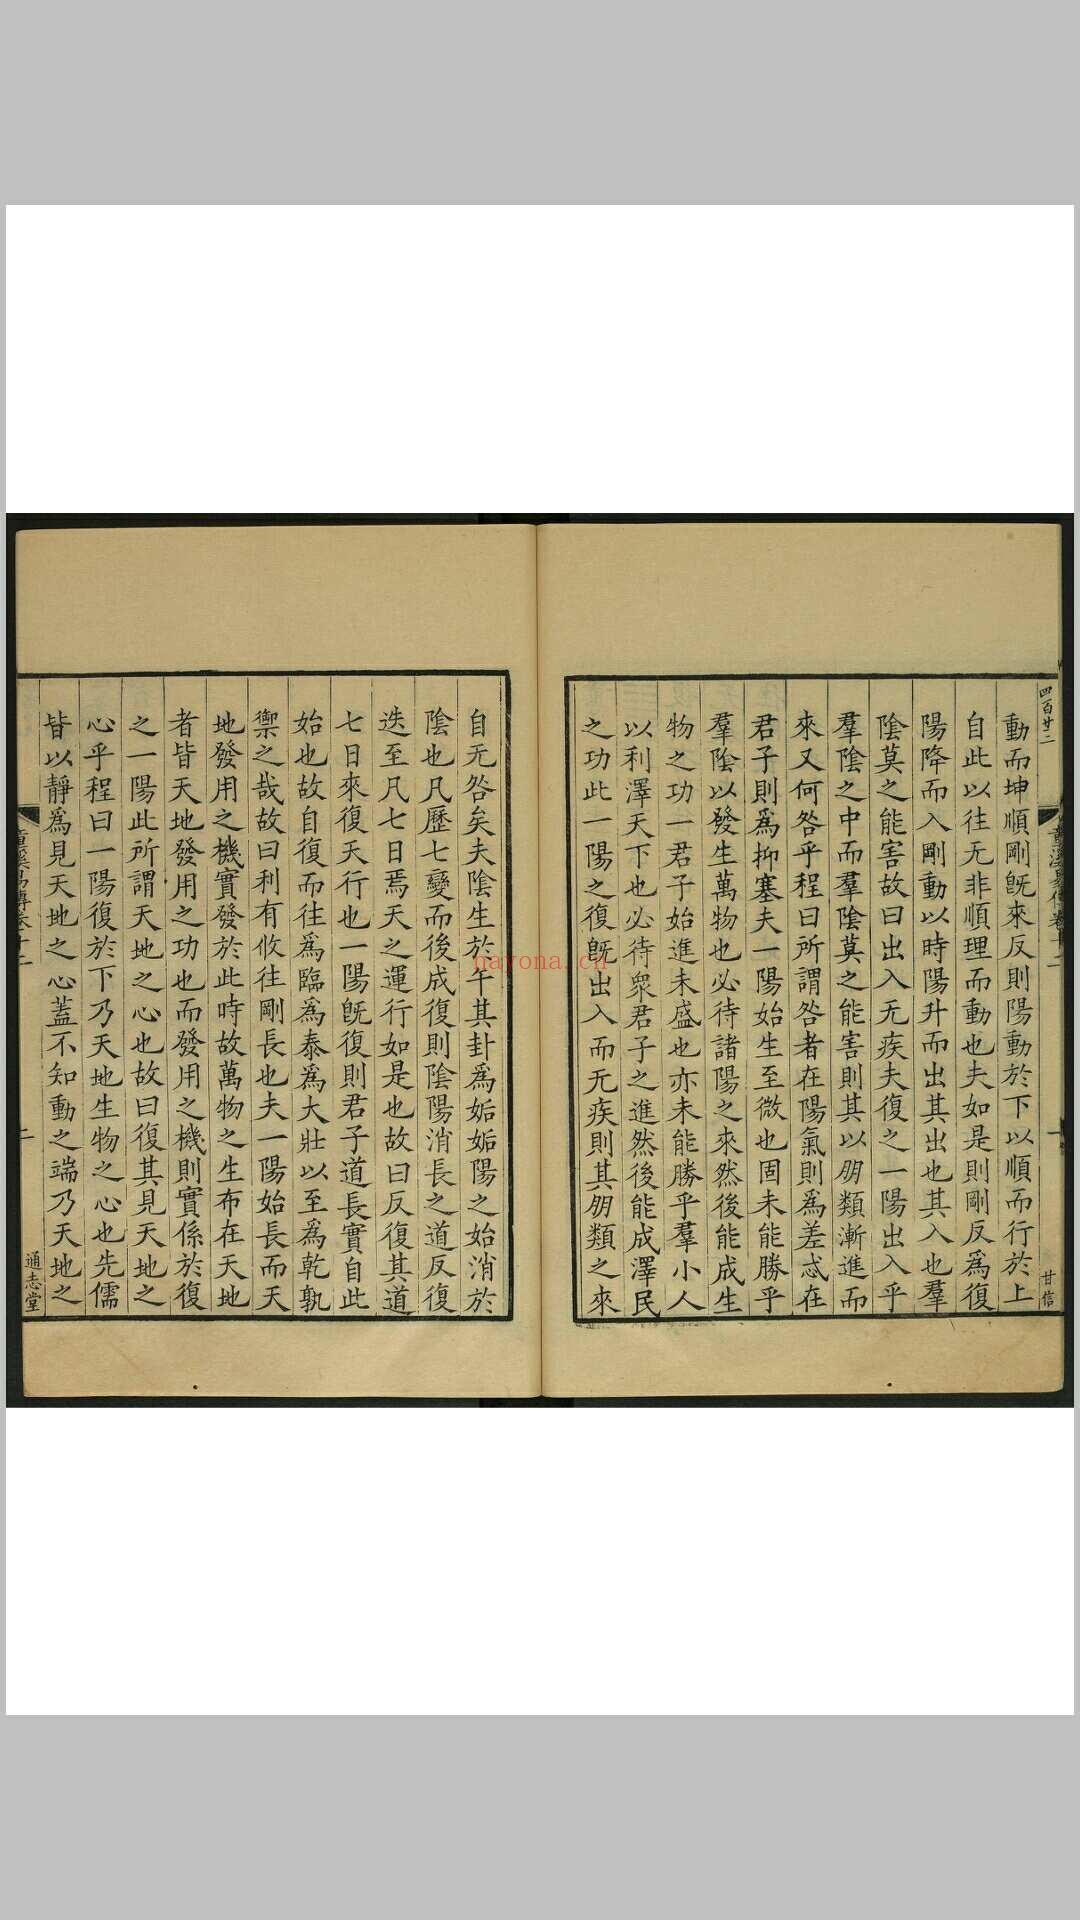 四百廿二
甘信
動而坤順剛旣來反則陽動於下以順而行於上
自此以往无非順理而動也夫如是則剛反爲復
陽降而入剛動以時陽升而出其出也其入也羣
陰莫之能害故曰出入无疾夫復之一陽出入乎
羣陰之中而羣陰莫之能害則其以朋類漸進而
來又何咎乎程曰所謂咎者在陽氣則爲差忒在
君子則爲抑塞夫一陽始生至微也固未能勝乎
羣陰以發生萬物也必待諸陽之來然後能成生
物之功一君子始進未盛也亦未能勝乎羣小人
以利澤天下也必待衆君子之進然後能成澤民
之功此一陽之復旣出入而无疾則其朋類之來
自无咎矣夫陰生於午其卦爲姤姤陽之始消於
陰也凡歷七變而後成復則陰陽消長之道反復
迭至凡七日焉天之運行如是也故曰反復其道
七日來復天行也一陽旣復則君子道長實自此
始也故自復而往爲臨爲泰爲大壯以至爲乾孰
禦之哉故曰利有攸往剛長也夫一陽始長而天
地發用之機實發於此時故萬物之生布在天地
者皆天地發用之功也而發用之機則實係於復
之一陽此所謂天地之心也故曰復其見天地之
心乎程曰一陽復於下乃天地生物之心也先儒
皆以靜爲見天地之心蓋不知動之端乃天地之
童溪易傳卷十二
二
通志堂
nayona.cn